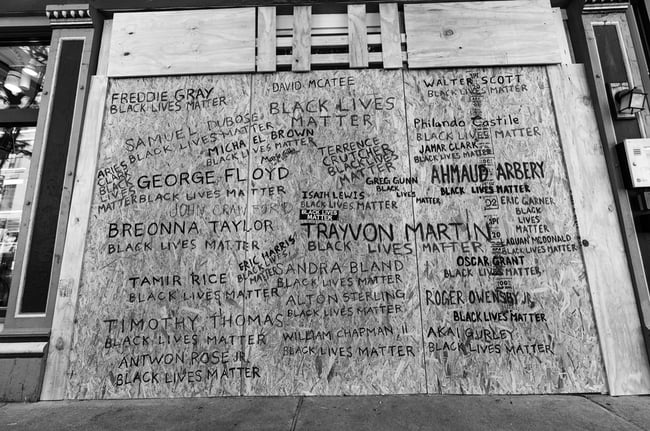 FREDDIE GRAY
BLACK LIVES MATTER
SAMUEL DUBOSE
BLACK LIVES MATTER
MICHAEL BROWN
BLACK LIVES MATTER
ARIES
CLARK
BLACK
LIVES
MATTER
GEORGE FLOYD
BLACK LIVES MATTER
JOHN CRAWFORD
BREONNA TAYLOR
BLACK LIVES MATTER
ERIC HARRIS
BLACK LIVES
MATTER
TAMIR RICE
BLACK LIVES MATTER
TIMOTHY THOMAS
BLACK LIVES MATTER
ANTWON ROSE JR.
BLACK LIVES MATTER
DAVID MCATEE
BLACK LIVES
MATTER
TERRENCE
CRUTCHER
BLACK LIVES
MATTER
GREG GUNN
BLACK
LIVES
MATTER
ISAIH LEWIS
BLACK LIVES MATTER
BLACK LIVES
MATTER
TRAYVON MARTIN
BLACK LIVES MATTER
SANDRA BLAND
BLACK LIVES MATTER
ALTON STERLING
BLACK LIVES MATTER
WILLIAM CHAPMAN II
BLACK LIVES MATTER
WALTER SCOTT
BLACK LIVES MATTER
Philando Castile
BLACK LIVES MATTER
JAMAR CLARK
BLACK LIVES MATTER
AHMAUD ARBERY
BLACK LIVES MATTER
ERIC GARNER
BLACK
LIVES
MATTER
LAQUAN MCDONALD
BLACK LIVES MATTER
OSCAR GRANT
BLACK LIVES MATTER
ROGER OWENSBY JR.
BLACK LIVES MATTER
AKAI GURLEY
BLACK LIVES MATTER